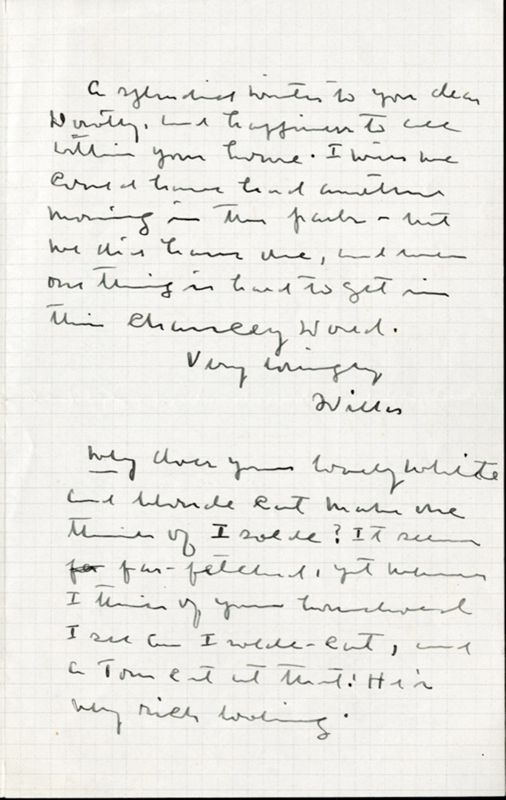 A splendid winter to you dear
Dorothy, and happiness to all
within your house. I wish we
could have had another
morning in the park - but
we did have one, and even
one thing is hard to get in
this chancey world.
Very lovingly
Willa
Why does your lovely white
and blonde cat make me
think of Isolde? It seems
far-fetched, yet when
I think of your household
I see an Isolde-cat, and
a Tom cat at that! He is
very rich looking.